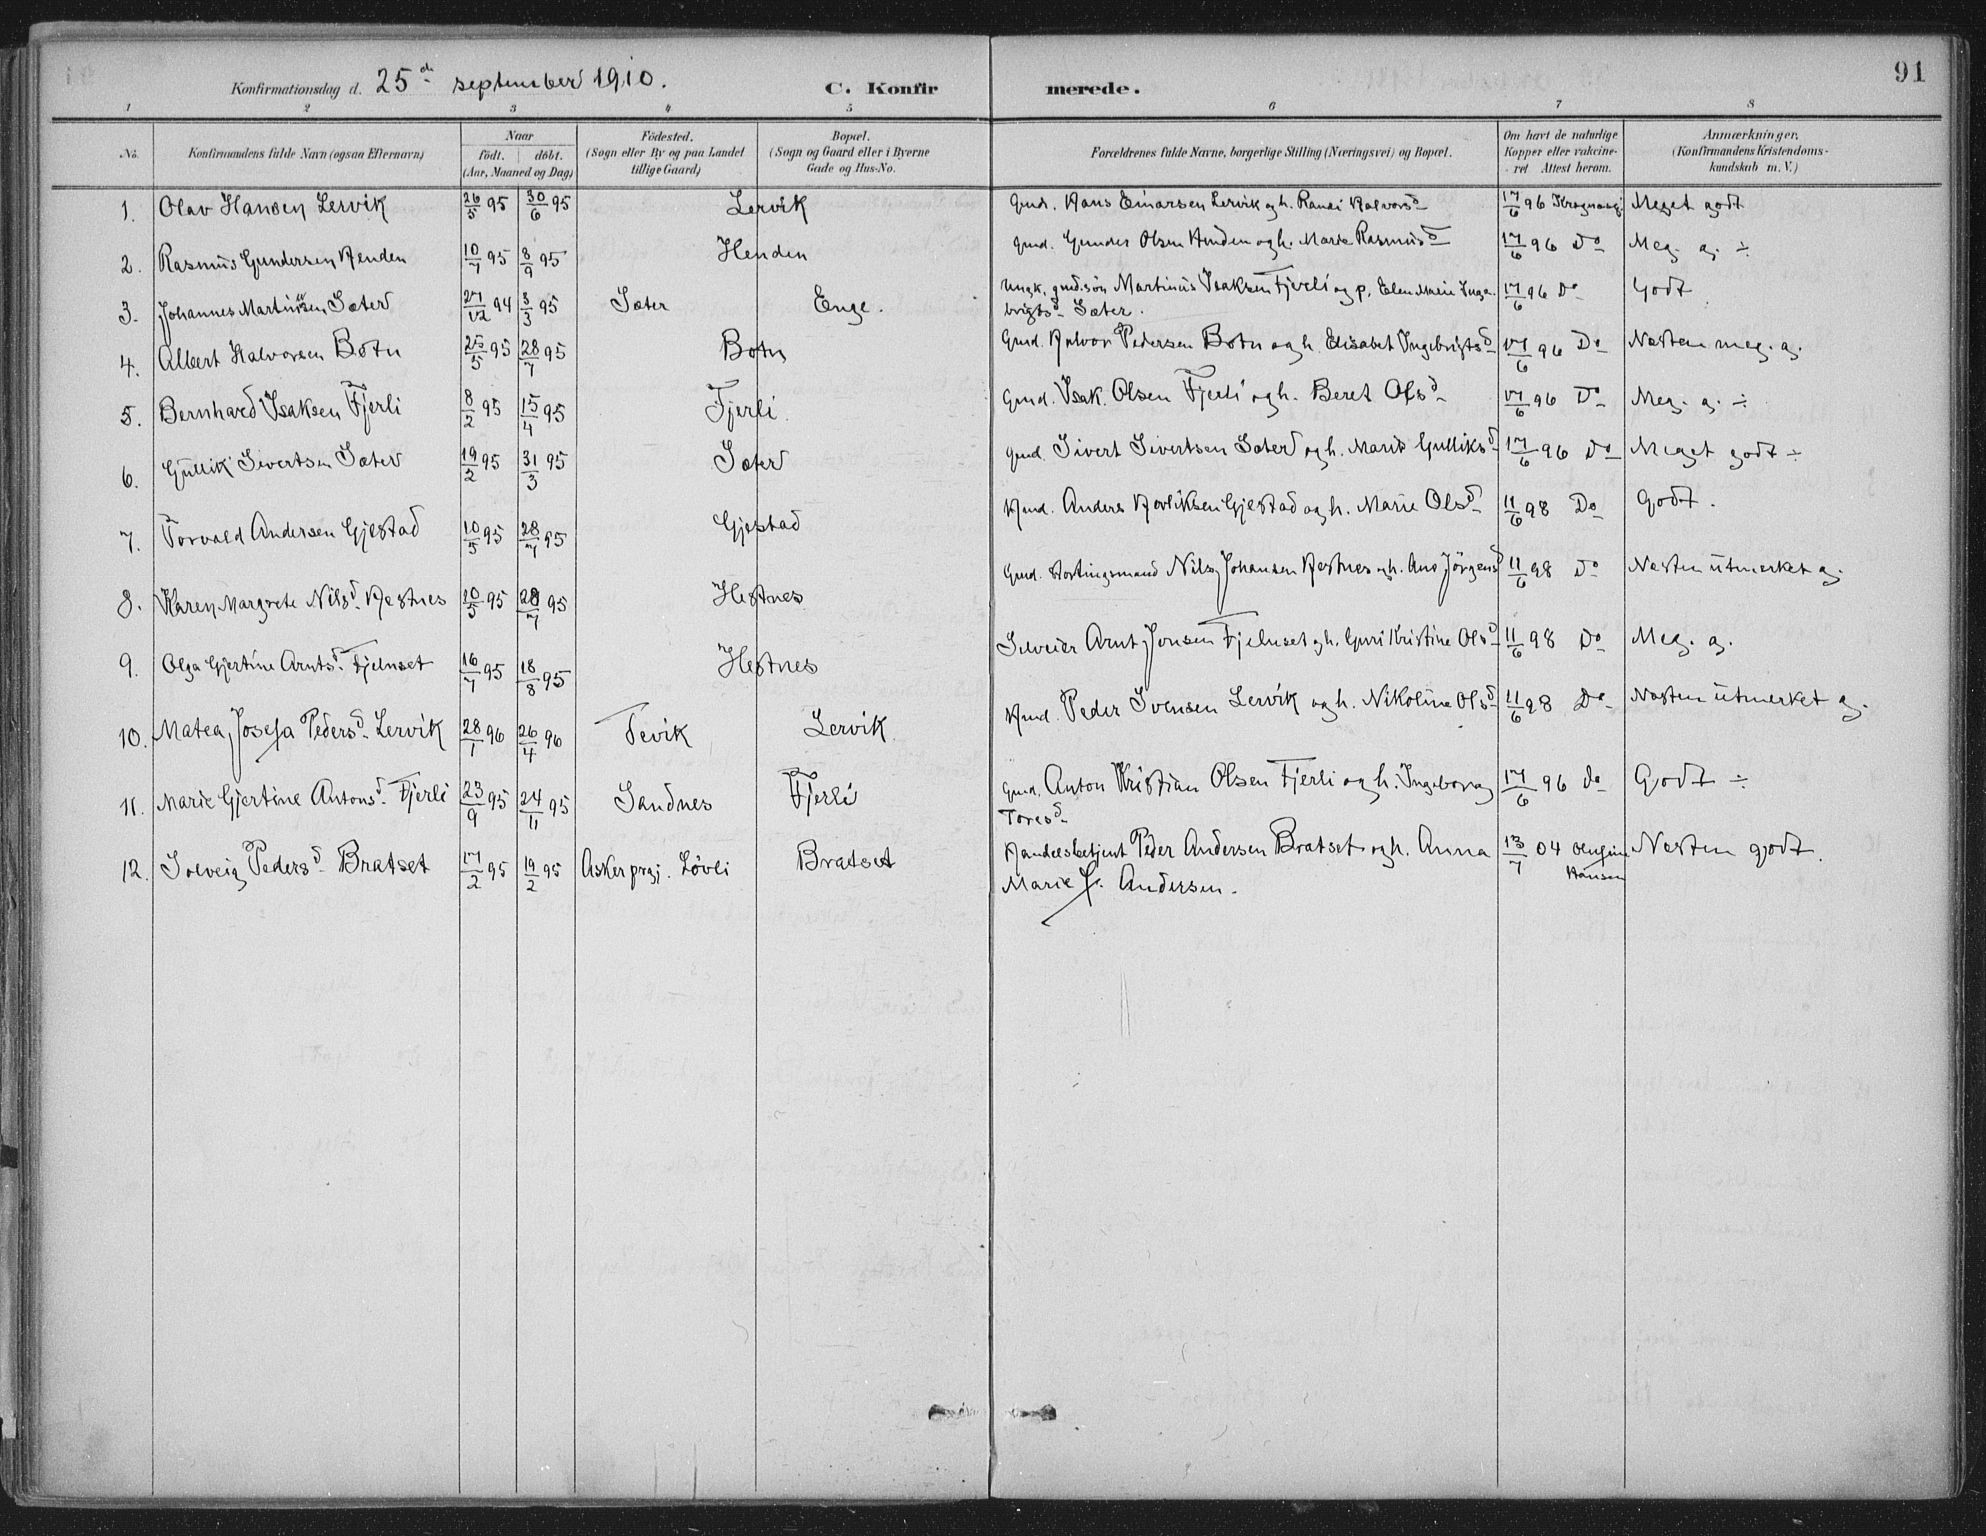 Konfirmationsdag d. 25de september 1910. C. Konfirmerede. 91
1 2 3 4 5 6 7 8
No. Konfirmandens fulde Navn (ogsaa Efternavn) Naar födt. döbt. (Aar, Maaned og Dag) Födested. (Sogn eller By og paa Landet tillige Gaard) Bopæl. (Sogn og Gaard eller i Byerne Gade og Hus-No. Forældrenes fulde Navne, borgerlige Stilling (Næringsvei) og Bopæl. Om havt de naturlige Kopper eller vakcineret Attest herom. Anmærkninger. (Konfirmandens Kristendomskundskab m. V.)
1. Olav Hansen Lervik 26/5 95 30/6 95 Lervik Gmd. Hans Einarsen Lervik og h. Randi Halvorsd 17/6 96 Meget godt
2. Rasmus Gundersen Henden 10/7 95 8/9 95 Henden Gmd. Gunder Olsen Henden og h. Marie Rasmusd 17/6 96 Do Meg. g. ÷
3. Johannes Martinusen Sæter 27/12 94 3/3 95 Sæter Enge. Ungk. gmd.søn Martinus Isaksen Fjerli og p. Elen Marie Inge-
brigtsd Sæter. 17/6 96 Do Godt
4. Albert Halvorsen Botn 25/5 95 28/7 95 Botn Gmd. Halvor Pedersen Botn og h. Elisabet Ingebrigtsd 17/6 96 Do Næsten meg. g.
5. Bernhard Isaksen Fjerli 8/2 95 15/4 95 Fjerli Gmd. Isak Olsen Fjerli og h. Beret Olsd 17/6 96 Do Meg. g. ÷
6. Gullik Sivertsen Sæter 19/2 95 31/3 95 Sæter Gmd. Sivert Sivertsen Sæter og h. Marit Gulliksd 17/6 96 Do Meget godt ÷
7. Torvald Andersen Gjestad 10/5 95 28/7 95 Gjestad Hmd. Anders Gjestad og h. Marie Olsd 11/6 98 Do Godt.
8. Karen Margrete Nilsd. Hestnes 20/5 95 28/7 95 Hestnes Gmd. Stortingsmand Nils Johansen Hestnes og h. Ane Jörgensd 11/6 98 Do Næsten utmerket g.
9. Olga Gjertine Arntsd. Fjelnset 16/7 95 18/8 95 Hestnes Arnt Jonsen Fjelnset og h. Guri Kristine Olsd 11/6 98 Do Meg. g.
10. Matea Josefa Pedersd. Lervik 28/1 96 26/4 96 Tevik Lervik Hmd. Peder Svensen Lervik og h. Nikoline Olsd 11/6 98 Do Næsten utmerket g.
11. Marie Gjertine Antonsd. Fjerli 23/9 95 24/11 95 Sandnes Fjerli Gmd. Anton Kristian Olsen Fjerli og h. Ingeborg
Toresd 17/6 96 do Godt ÷
12. Solveig Pedersd. Bratset 17/2 95 19/2 95 Asker prgj. Løvli Bratset Handelsbetjent Peder Andersen Bratset og h. Anna
Marie J. Andersen. 13/7 04 Hansen Næsten godt.